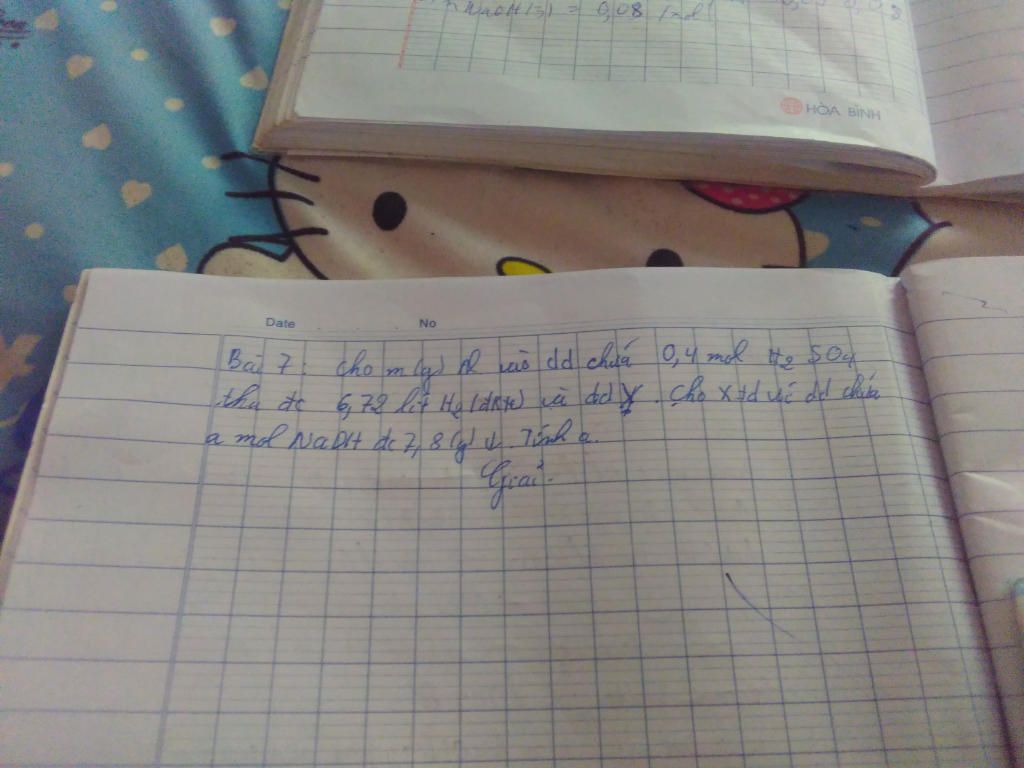 = 0,08 mol
HÒA BÌNH
Date No
Bài 7: Cho m(g) Al vào dd chứa 0,4 mol H2SO4
thu đc 6,72 lít H2(đktc) và dd X. Cho X td với dd chứa
a mol NaOH đc 7,8(g) ↓. Tính a.
Giải